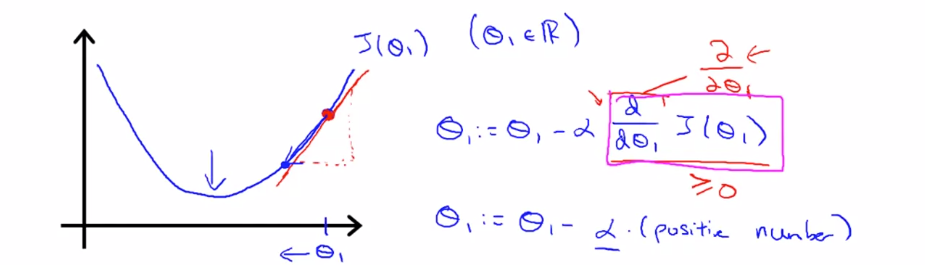 J(θ₁) (θ₁ ∈ ℝ)
∂/∂θ₁ ←
θ₁ := θ₁ - α d/dθ₁ J(θ₁)
≥ 0
θ₁ := θ₁ - α · (positie number)
← θ₁